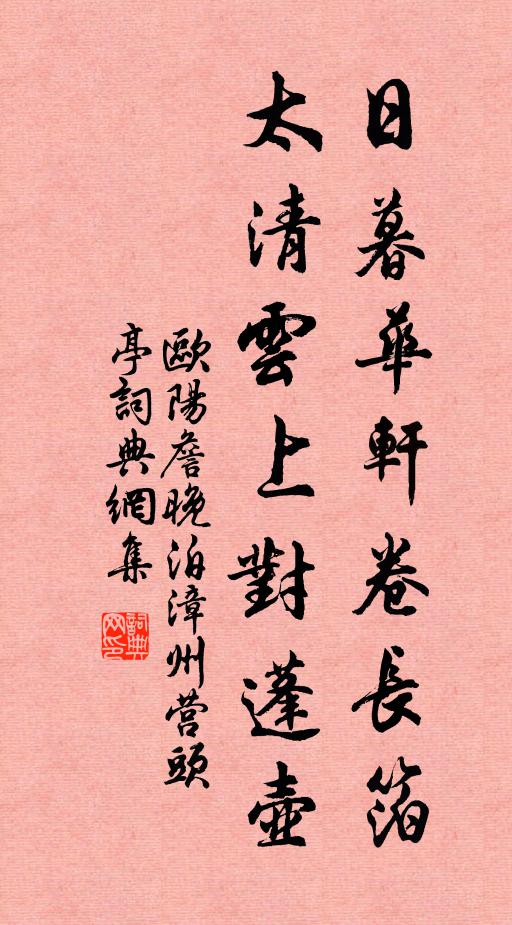 日暮華軒卷長箔
太清雲上對蓬壺
歐陽詹晚泊漳州营頭
亭詞典網集
詞典
网印